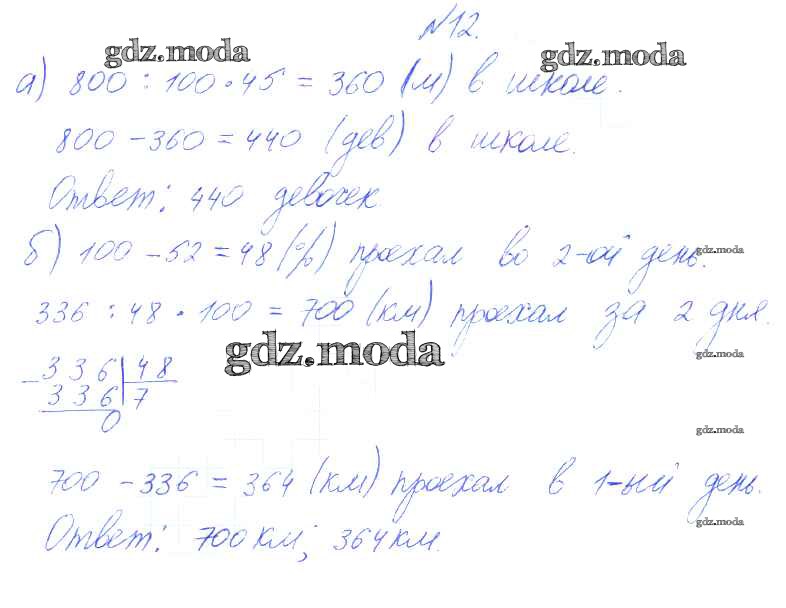 №12.
gdz.moda gdz.moda
а) 800 : 100 · 45 = 360 (м) в школе.
800 - 360 = 440 (дев) в школе.
Ответ: 440 девочек.
б) 100 - 52 = 48 (%) проехал во 2-ой день.
gdz.moda
336 : 48 · 100 = 700 (км) проехал за 2 дня.
gdz.moda
gdz.moda
- 336 | 48
336 | 7
0
gdz.moda
700 - 336 = 364 (км) проехал в 1-ый день.
gdz.moda
Ответ: 700 км; 364 км.